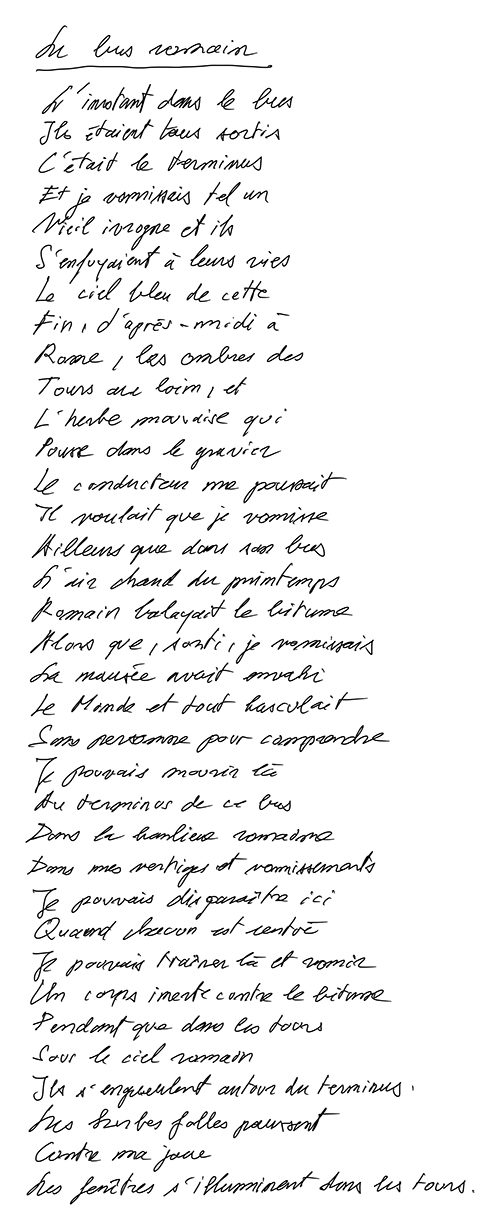 Le bus romain
L'instant dans le bus
Ils étaient tous sortis
C'était le terminus
Et je vomissais tel un
Vieil ivrogne et ils
S'enfuyaient à leurs vies
Le ciel bleu de cette
Fin, d'après-midi à
Rome, les ombres des
Tours au loin, et
L'herbe mauvaise qui
Pousse dans le gravier
Le conducteur me poussait
Il voulait que je vomisse
Ailleurs que dans son bus
L'air chaud du printemps
Romain balayait le bitume
Alors que, sorti, je vomissais
La nausée avait envahi
Le Monde et tout basculait
Sans personne pour comprendre
Je pouvais mourir là
Au terminus de ce bus
Dans la banlieue romaine
Dans mes vertiges et vomissements
Je pouvais disparaître ici
Quand chacun est rentré
Je pouvais traîner là et vomir
Un corps inerte contre le bitume
Pendant que dans les tours
Sous le ciel romain
Ils s'engueulent autour du terminus.
Les herbes folles poussent
Contre ma joue
Les fenêtres s'illuminent dans les tours.